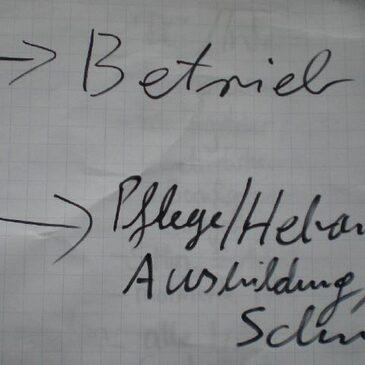 → Betrieb
→ Pflege/Heba
Ausbildung,
Sch